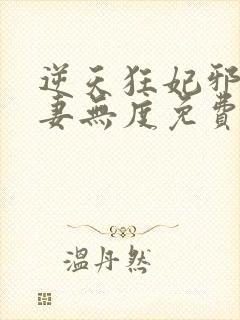 逆天狂妃邪
妻無度免費
溫丹然